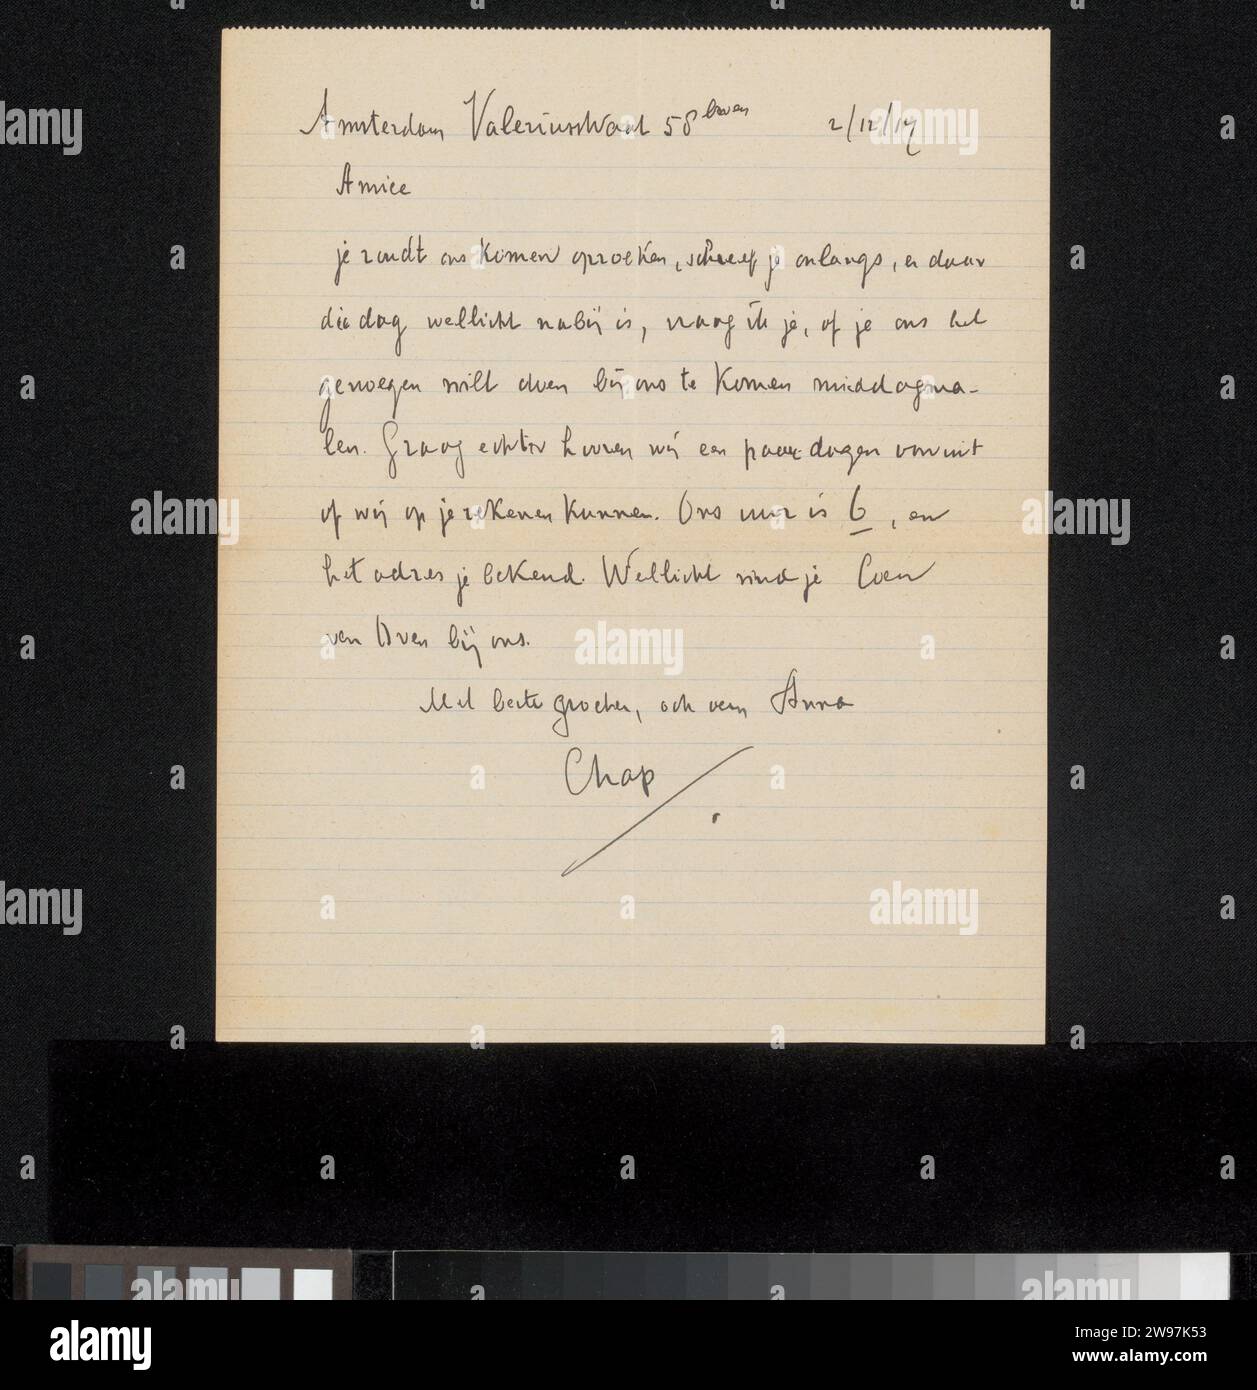 Amsterdam Valeriusstraat 58 boven 2/12/17
Amice
je zoudt ons komen opzoeken, schreef je onlangs, en daar
die dag wellicht nabij is, vraag ik je, of je ons het
genoegen wilt doen bij ons te komen middagma-
len. Graag echter hooren wij een paar dagen vooruit
of wij op je rekenen kunnen. Ons uur is 6, en
het adres je bekend. Wellicht vind je Coen
van Oven bij ons.
Met beste groeten, ook van Anna
Chap
alamy
Image ID: 2W97K53
www.alamy.com